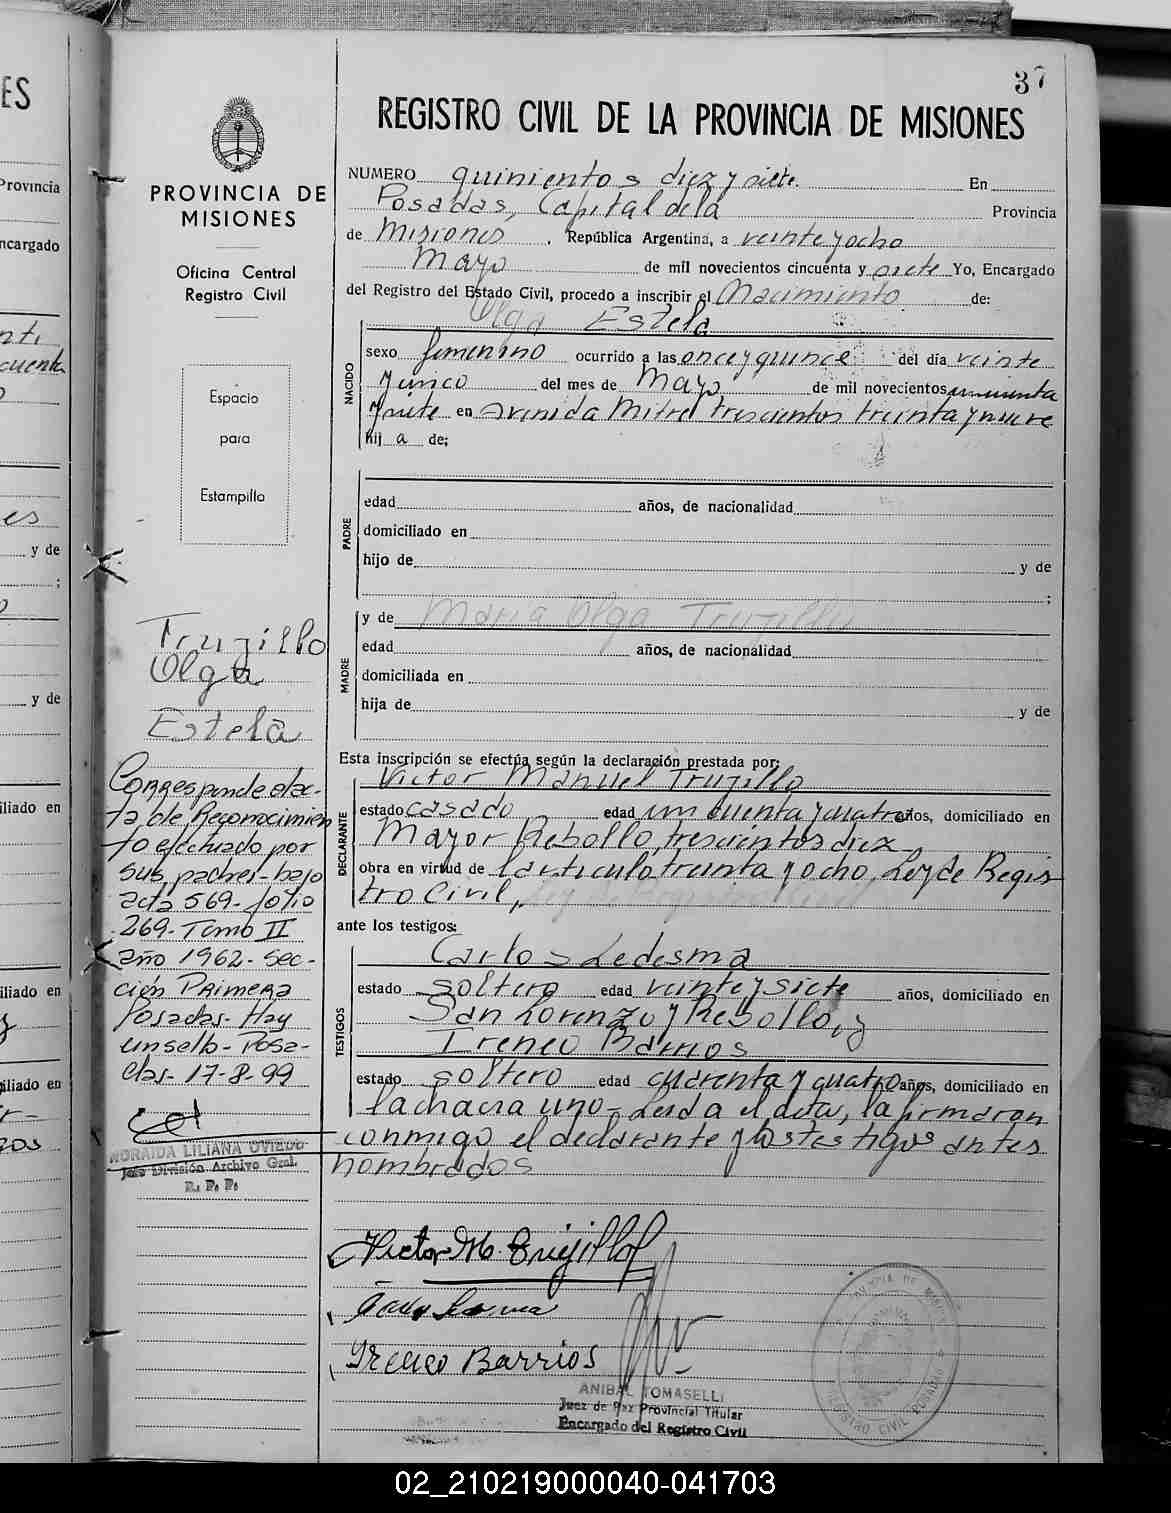 37
REGISTRO CIVIL DE LA PROVINCIA DE MISIONES
PROVINCIA DE
MISIONES
Oficina Central
Registro Civil
Espacio
para
Estampilla
NUMERO quinientos diez y siete. En
Posadas, Capital de la Provincia
de Misiones, República Argentina, a veinte y ocho
Mayo de mil novecientos cincuenta y siete Yo, Encargado
del Registro del Estado Civil, procedo a inscribir el Nacimiento de:
Olga Estela
NACIDO
sexo femenino ocurrido a las once y quince del día veinte
y unico del mes de Mayo de mil novecientos cincuenta
y siete en avenida Mitre trescientos treinta y nueve
hij a de:
PADRE
edad años, de nacionalidad
domiciliado en
hijo de y de
;
y de Maria Olga Trujillo
MADRE
edad años, de nacionalidad
domiciliada en
hija de y de
Esta inscripción se efectúa según la declaración prestada por:
Victor Manuel Trujillo
DECLARANTE
estado casado edad cincuenta y cuatro años, domiciliado en
Mayor Rebollo, trescientos diez
obra en virtud de l artículo treinta y ocho, Ley de Regis
tro Civil,
ante los testigos:
Carlos Ledesma
TESTIGOS
estado soltero edad veinte y siete años, domiciliado en
San Lorenzo y Rebollo, y
Ireneo Barrios
estado soltero edad cuarenta y cuatro años, domiciliado en
la chacra uno- Leida el acta, la firmaron
conmigo el declarante y los testigos antes
nombrados
Trujillo
Olga
Estela
Corresponde al ac-
ta de Reconocimien
to efectuado por
sus padres- bajo
acta 569- folio
269- Tomo II
año 1962- Sec-
ción Primera
Posadas- Hay
un sello- Posa-
das- 17-8-99
NORAIDA LILIANA OVIEDO
Jefe División Archivo Gral.
R. P. P.
Victor M. Trujillo
Ireneo Barrios
ANIBAL TOMASELLI
Juez de Paz Provincial Titular
Encargado del Registro Civil
REGISTRO CIVIL POSADAS
ES
Provincia
ncargado
y de
;
y de
iliado en
iliado en
iliado en
02_210219000040-041703